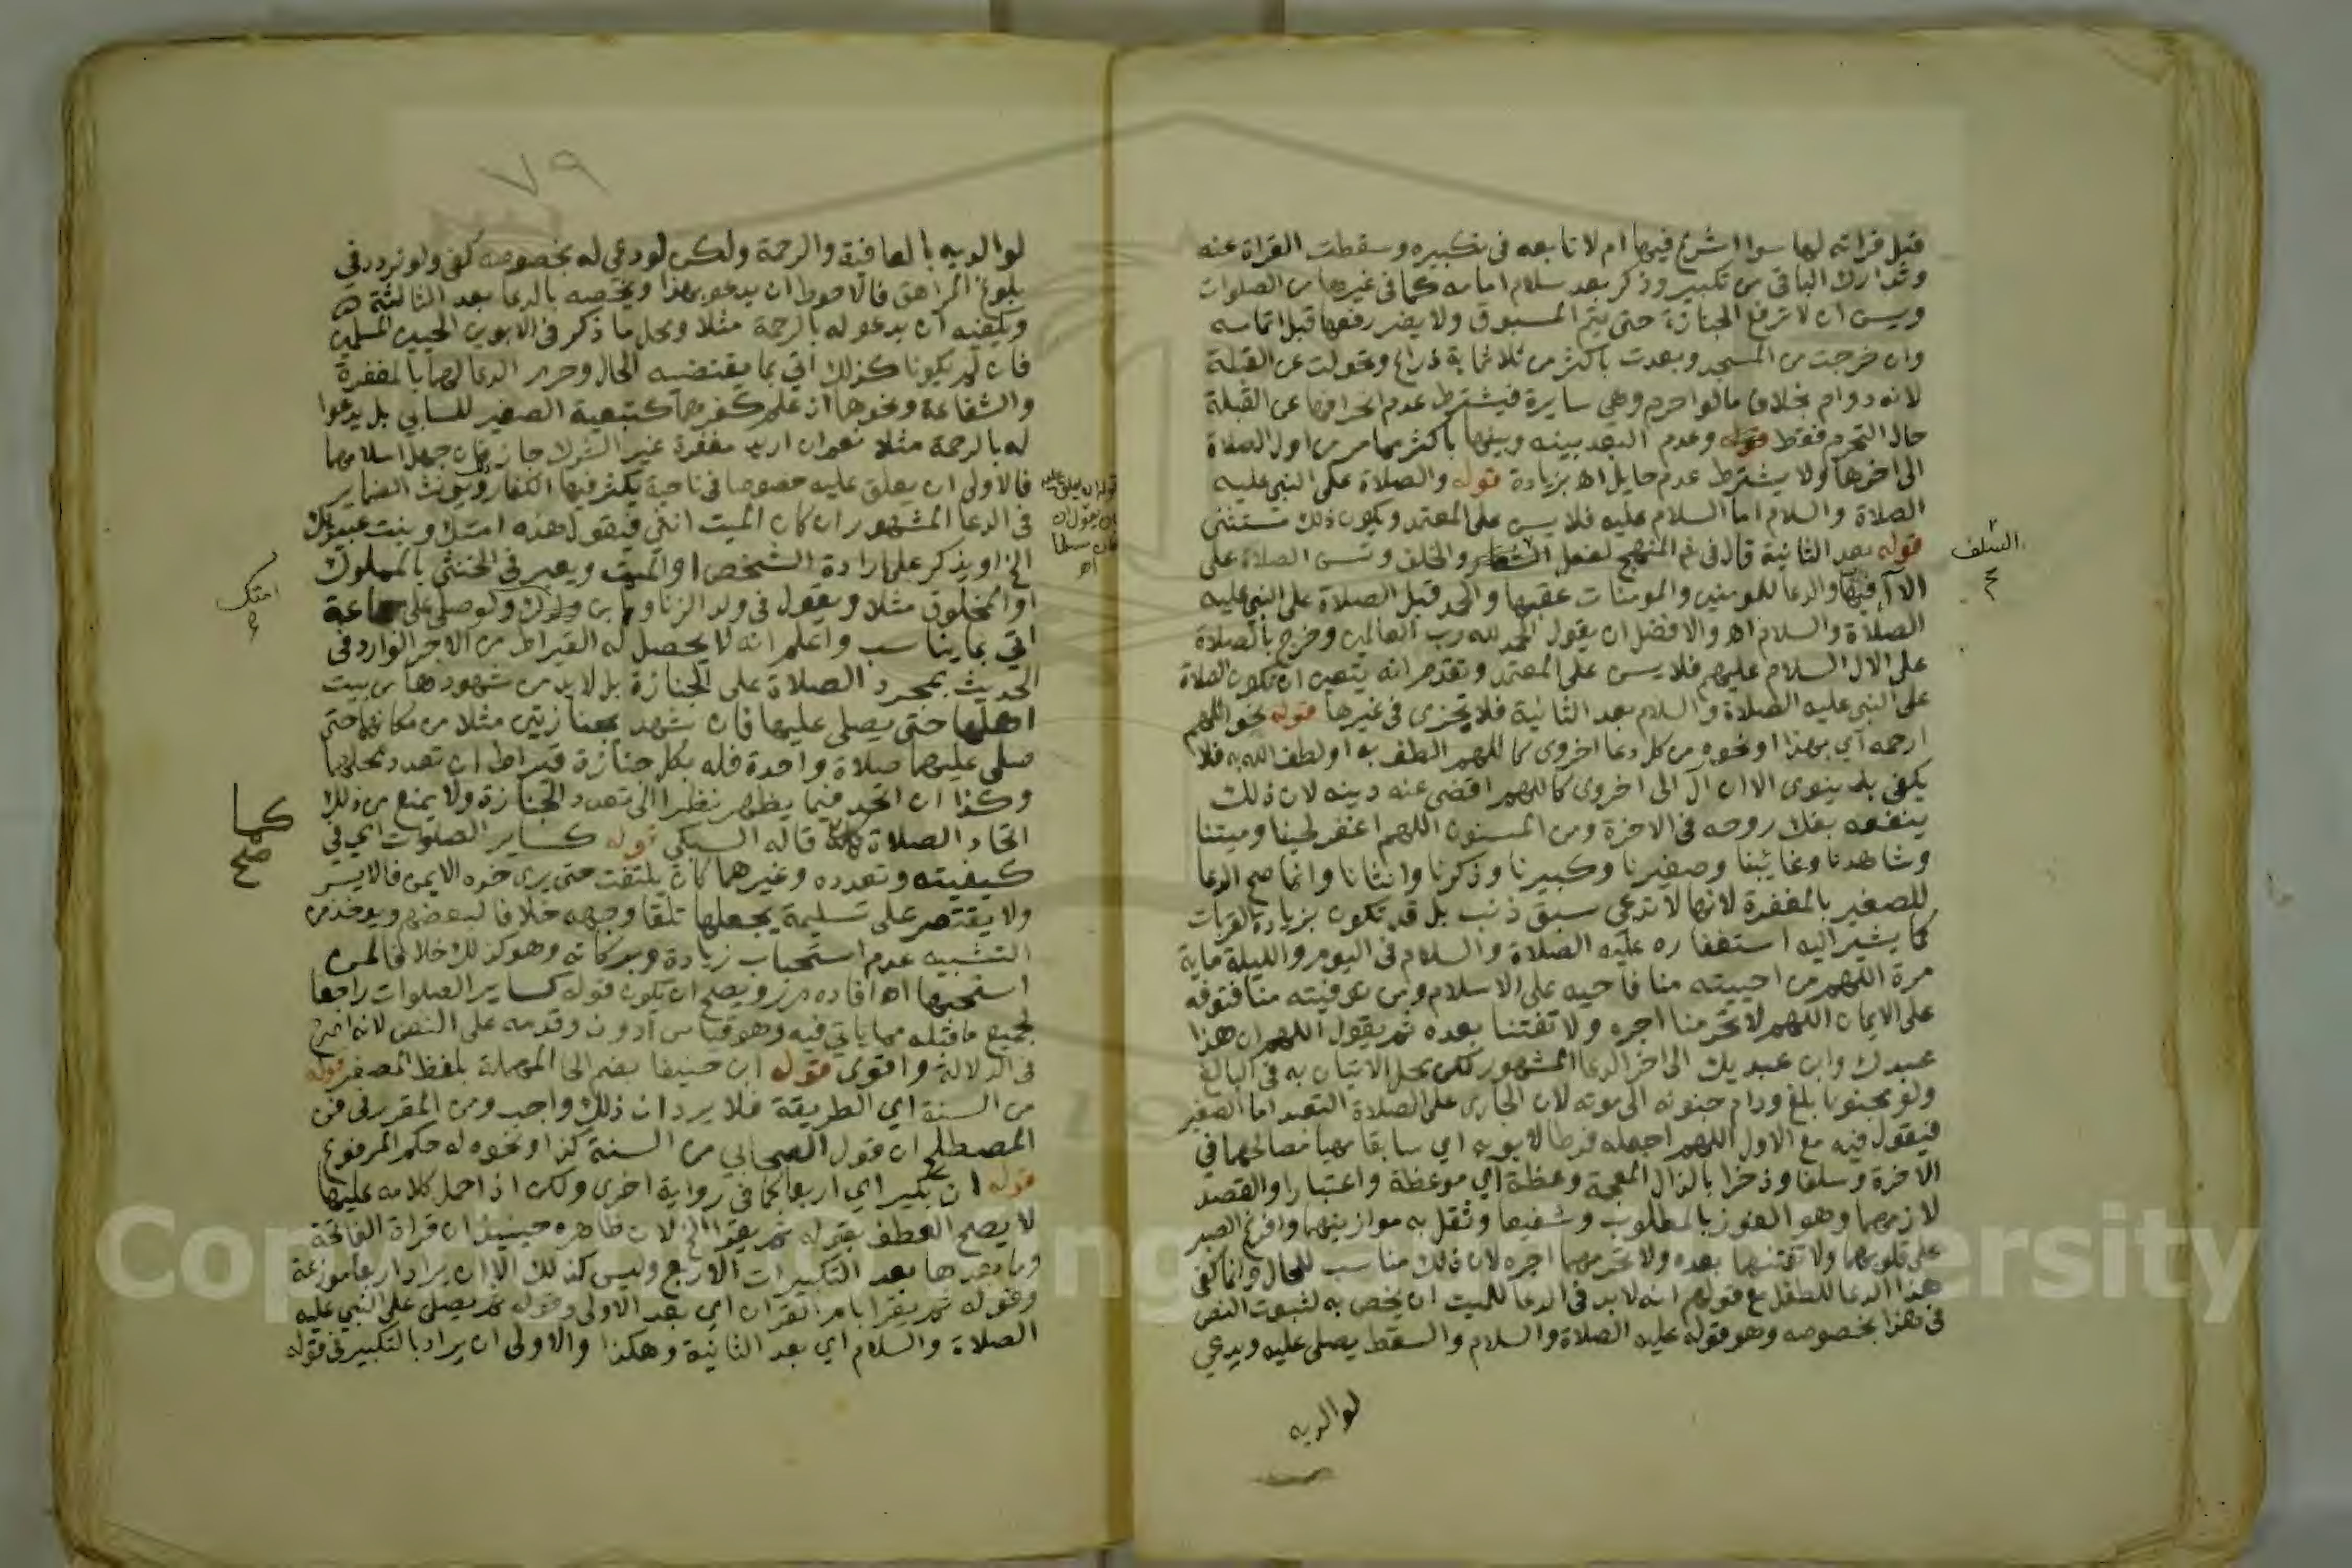 قبل قراته لها سوا اشرع فيها ام لا تابعه في تكبيره وسقطت القراة عنه
وتدارك الباقي من تكبير وذكر بعد سلام امامه كما في غيرها من الصلوات
ويسن ان لا ترفع الجنازة حتى يتم المسبوق ولا يضر رفعها قبل اتمامه
وان خرجت من المسجد وبعدت باكثر من ثلاثماية ذراع وتحولت عن القبلة
لانه دوام بخلاف ما لو احرم وهي سايرة فيشترط عدم انحرافها عن القبلة
حال التحرم فقط قوله وعدم البعد بينه وبينها باكثر مما مر من اول الصلاة
الى اخرها ولا يشترط عدم حايل اه بزيادة قوله والصلاة على النبي عليه
الصلاة والسلام اما السلام عليه فلا يسن على المعتمد ويكون ذلك مستثنى
قوله بعد الثانية قال في المنهج لفعل والخلف وتسن الصلاة على
السلف
الال فيها والدعا للمومنين والمومنات عقبها والحمد قبل الصلاة على النبي عليه
الصلاة والسلام اه والافضل ان يقول الحمد لله رب العالمين وخرج بالصلاة
على الال السلام عليهم فلا يسن على المعتمد وتقدم انه يتعين ان تكون الصلاة
على النبي عليه الصلاة والسلام بعد الثانية فلا تجزى في غيرها قوله نحو اللهم
ارحمه اي بهذا او نحوه من كل دعا اخروى كاللهم الطف به او لطف الله به فلا
يكفي بدنيوى الا ان آل الى اخروى كاللهم اقضى عنه دينه لان ذلك
ينفعه بفك روحه في الاخرة ومن المسنون اللهم اغفر لحينا وميتنا
وشاهدنا وغايبنا وصغيرنا وكبيرنا وذكرنا وانثانا وانما صح الدعا
للصغير بالمغفرة لانها لا تدعي سبق ذنب بل قد تكون بزيادة القربات
كما يشير اليه استغفاره عليه الصلاة والسلام في اليوم والليلة ماية
مرة اللهم من احييته منا فاحيه على الاسلام ومن توفيته منا فتوفه
على الايمان اللهم لا تحرمنا اجره ولا تفتنا بعده ثم يقول اللهم ان هذا
عبدك وابن عبديك الى اخر الدعا المشهور لكن محل الاتيان به في البالغ
ولو مجنونا بلغ ودام جنونه الى موته لان الجارى على الصلاة التعبد اما الصغير
فيقول فيه مع الاول اللهم اجعله فرطا لابويه اي سابقا مهيا مصالحهما في
الاخرة وسلفا وذخرا بالذال المعجمة وعظة اي موعظة واعتبارا والقصد
لازمهما وهو الفوز بالمطلوب وشفيعا وثقل به موازينهما وافرغ الصبر
على قلوبهما ولا تفتنهما بعده ولا تحرمهما اجره لان ذلك مناسب للحال وانما كفى
هذا الدعا للطفل مع قولهم انه لا بد في الدعا للميت ان يخص به لثبوت النص
في هذا بخصوصه وهو قوله عليه الصلاة والسلام والسقط يصلى عليه ويدعى
لوالديه
٧٩
لوالديه بالعافية والرحمة ولكن لو دعى له بخصوصه كفى ولو تردد في
بلوغ المراهق فالاحوط ان يدعو بهذا ويخصه بالدعا بعد الثالثة
ويكفيه ان يدعو له بالرحمة مثلا ومحل ما ذكر في الابوين الحيين المسلمين
فان لم يكونا كذلك اتي بما يقتضيه الحال وحرر الدعا لهما بالمغفرة
والشفاعة ونحوها ان علم كفرهما كتبعية الصغير للسابي بل يدعوا
له بالرحمة مثلا نعم ان اريد مغفرة غير الشرك جاز فان جهل اسلامهما
فالاولى ان يعلق عليه خصوصا في ناحية يكثر فيها الكفار ويونث الضماير
في الدعا المشهور ان كان الميت انثى فيقول هذه امتك وبنت عبديك
الخ او يذكر على ارادة الشخص او الميت ويعبر في الخنثى بالمملوك
او المخلوق مثلا ويقول في ولد الزنا وابن امتك ولو صلى على جماعة
امتك
اتي بما يناسب واعلم انه لا يحصل له القيراط من الاجر الوارد في
الحديث بمجرد الصلاة على الجنازة بل لا بد من شهودها من بيت
اهلها حتى يصلى عليها فان شهد بجنازتين مثلا من مكانهما حتى
صلى عليهما صلاة واحدة فله بكل جنازة قيراط ان تعدد محلهما
وكذا ان اتحد فيما يظهر نظرا الى تعدد الجنازة ولا يمنع من ذلك
اتحاد الصلاة قاله السبكي قوله كساير الصلوات اي في
كما
صح
كيفيته وتعدده وغيرهما كان يلتفت حتى يرى خده الايمن فالايسر
ولا يقتصر على تسليمة يجعلها تلقا وجهه خلافا لبعضهم ويوخذ من
التشبيه عدم استحباب زيادة وبركاته وهو كذلك خلافا لمن
استحبها اه افاده مرز ويصح ان يكون قوله كساير الصلوات راجعا
لجميع ما قبله مما ياتي فيه وهو قياس ادون وقدمه على النص لانه اصرح
في الدلالة واقوى قوله ابن حنيفا بضم الحا المهملة بلفظ المصغر قوله
من السنة اي الطريقة فلا يرد ان ذلك واجب ومن المقرر في فن
المصطلح ان قول الصحابي من السنة كذا او نحوه له حكم المرفوع
قوله ان يكبر اي اربعا كما في رواية اخرى ولكن اذا حمل كلامه عليها
لا يصح العطف بقوله ثم يقرا الخ لان ظاهره حينيذ ان قراة الفاتحة
وما بعدها بعد التكبيرات الاربع وليس كذلك الا ان يراد اربعا موزعة
وقوله ثم يقرا بام القران اي بعد الاولى وقوله ثم يصلى على النبي عليه
الصلاة والسلام اي بعد الثانية وهكذا والاولى ان يراد بالتكبير في قوله